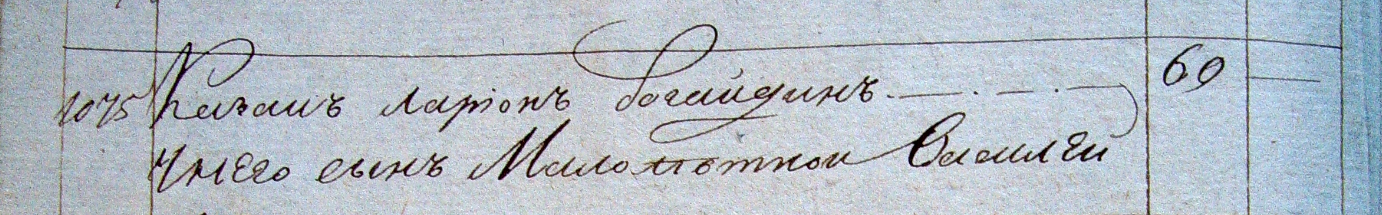 1075 Казакъ Ларіонъ богайдинъ 69
Унего сынъ Малолѣтной Василей